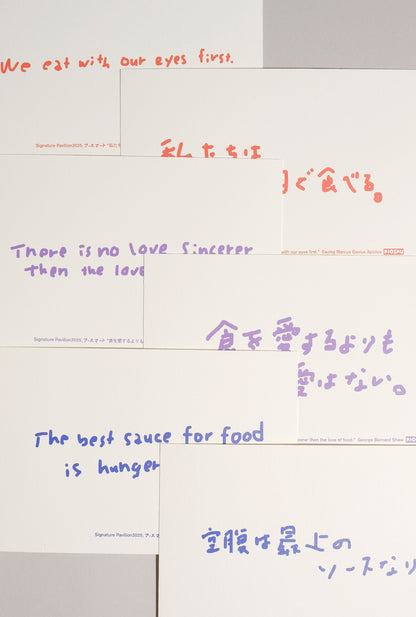 We eat with our eyes first.
Signature Pavilion2025, アースマート "私た
私たちは
ぐ食べる。
with our eyes first." Saying Marcus Gavius Apicius
There is no love sincerer
then the love
Signature Pavilion2025, アースマート "食を愛するよりも
食を愛するよりも
愛はない。
sincerer than the love of food." George Bernard Shaw
The best sauce for food
is hunger
Signature Pavilion2025, アースマ
空腹は最上の
ソースなり